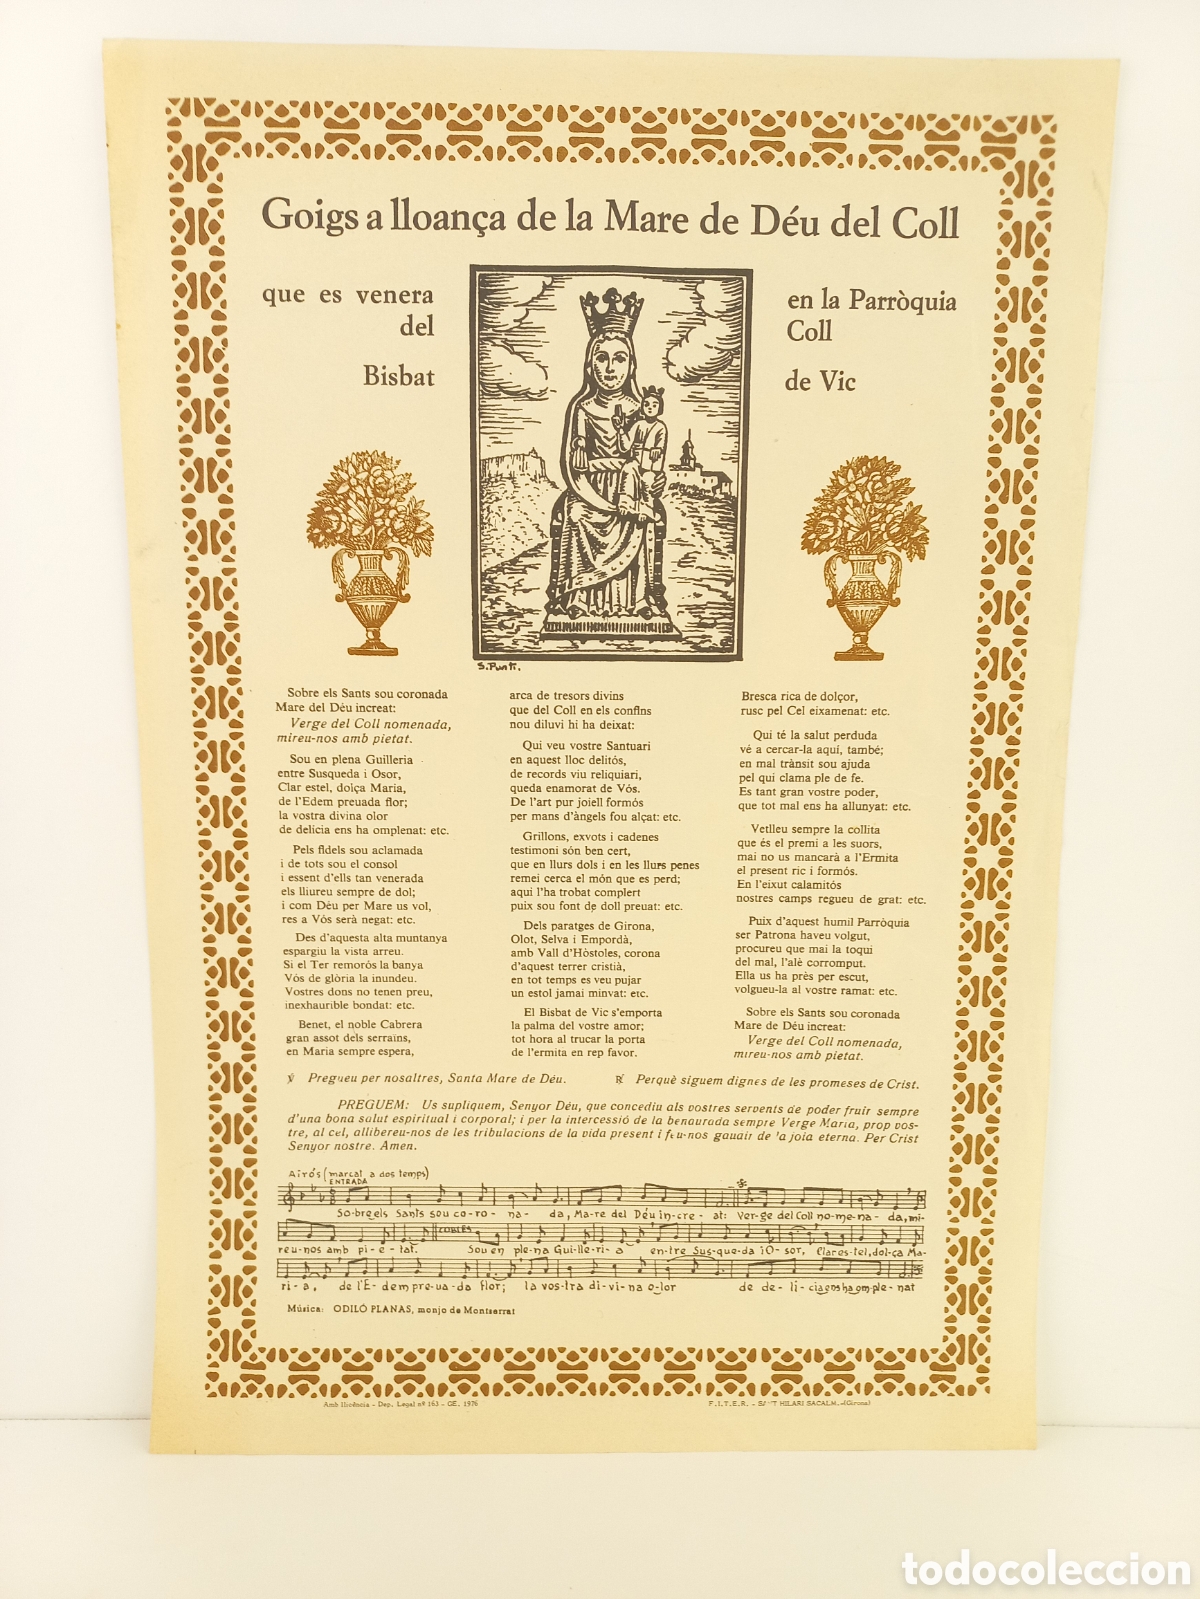 Goigs a lloança de la Mare de Déu del Coll
que es venera
del
Bisbat
en la Parròquia
Coll
de Vic
S. Punti.
Sobre els Sants sou coronada
Mare del Déu increat:
Verge del Coll nomenada,
mireu-nos amb pietat.
Sou en plena Guilleria
entre Susqueda i Osor,
Clar estel, dolça Maria,
de l'Edem preuada flor;
la vostra divina olor
de delícia ens ha omplenat: etc.
Pels fidels sou aclamada
i de tots sou el consol
i essent d'ells tan venerada
els lliureu sempre de dol;
i com Déu per Mare us vol,
res a Vós serà negat: etc.
Des d'aquesta alta muntanya
espargiu la vista arreu.
Si el Ter remorós la banya
Vós de glòria la inundeu.
Vostres dons no tenen preu,
inexhaurible bondat: etc.
Benet, el noble Cabrera
gran assot dels serraïns,
en Maria sempre espera,
arca de tresors divins
que del Coll en els confins
nou diluvi hi ha deixat:
Qui veu vostre Santuari
en aquest lloc delitós,
de records viu reliquiari,
queda enamorat de Vós.
De l'art pur joiell formós
per mans d'àngels fou alçat: etc.
Grillons, exvots i cadenes
testimoni són ben cert,
que en llurs dols i en les llurs penes
remei cerca el món que es perd;
aquí l'ha trobat complert
puix sou font de doll preuat: etc.
Dels paratges de Girona,
Olot, Selva i Empordà,
amb Vall d'Hòstoles, corona
d'aquest terrer cristià,
en tot temps es veu pujar
un estol jamai minvat: etc.
El Bisbat de Vic s'emporta
la palma del vostre amor;
tot hora al trucar la porta
de l'ermita en rep favor.
Bresca rica de dolçor,
rusc pel Cel eixamenat: etc.
Qui té la salut perduda
vé a cercar-la aquí, també;
en mal trànsit sou ajuda
pel qui clama ple de fe.
Es tant gran vostre poder,
que tot mal ens ha allunyat: etc.
Vetlleu sempre la collita
que és el premi a les suors,
mai no us mancarà a l'Ermita
el present ric i formós.
En l'eixut calamitós
nostres camps regueu de grat: etc.
Puix d'aquest humil Parròquia
ser Patrona haveu volgut,
procureu que mai la toqui
del mal, l'alè corromput.
Ella us ha près per escut,
volgueu-la al vostre ramat: etc.
Sobre els Sants sou coronada
Mare de Déu increat:
Verge del Coll nomenada,
mireu-nos amb pietat.
℣ Pregueu per nosaltres, Santa Mare de Déu. ℟ Perquè siguem dignes de les promeses de Crist.
PREGUEM: Us supliquem, Senyor Déu, que concediu als vostres servents de poder fruir sempre
d'una bona salut espiritual i corporal; i per la intercessió de la benaurada sempre Verge Maria, prop vos-
tre, al cel, allibereu-nos de les tribulacions de la vida present i feu-nos gaudir de 'a joia eterna. Per Crist
Senyor nostre. Amen.
Airós (marcat a dos temps)
ENTRADA
So-bre els Sants sou co-ro-na-da, Ma-re del Déu in-cre-at: Ver-ge del Coll no-me-na-da, mi-
COBLES
reu-nos amb pi-e-tat. Sou en ple-na Gui-lle-ri-a en-tre Sus-que-da i O-sor, Clar es-tel, dol-ça Ma-
ri-a, de l'E-dem pre-ua-da flor; la vos-tra di-vi-na o-lor de de-lí-cia ens ha om-ple-nat
Música: ODILÓ PLANAS, monjo de Montserrat
Amb llicència - Dep. Legal nº 163 - GE. 1976
F.I.T.E.R. - SANT HILARI SACALM.-(Girona)
todocoleccion